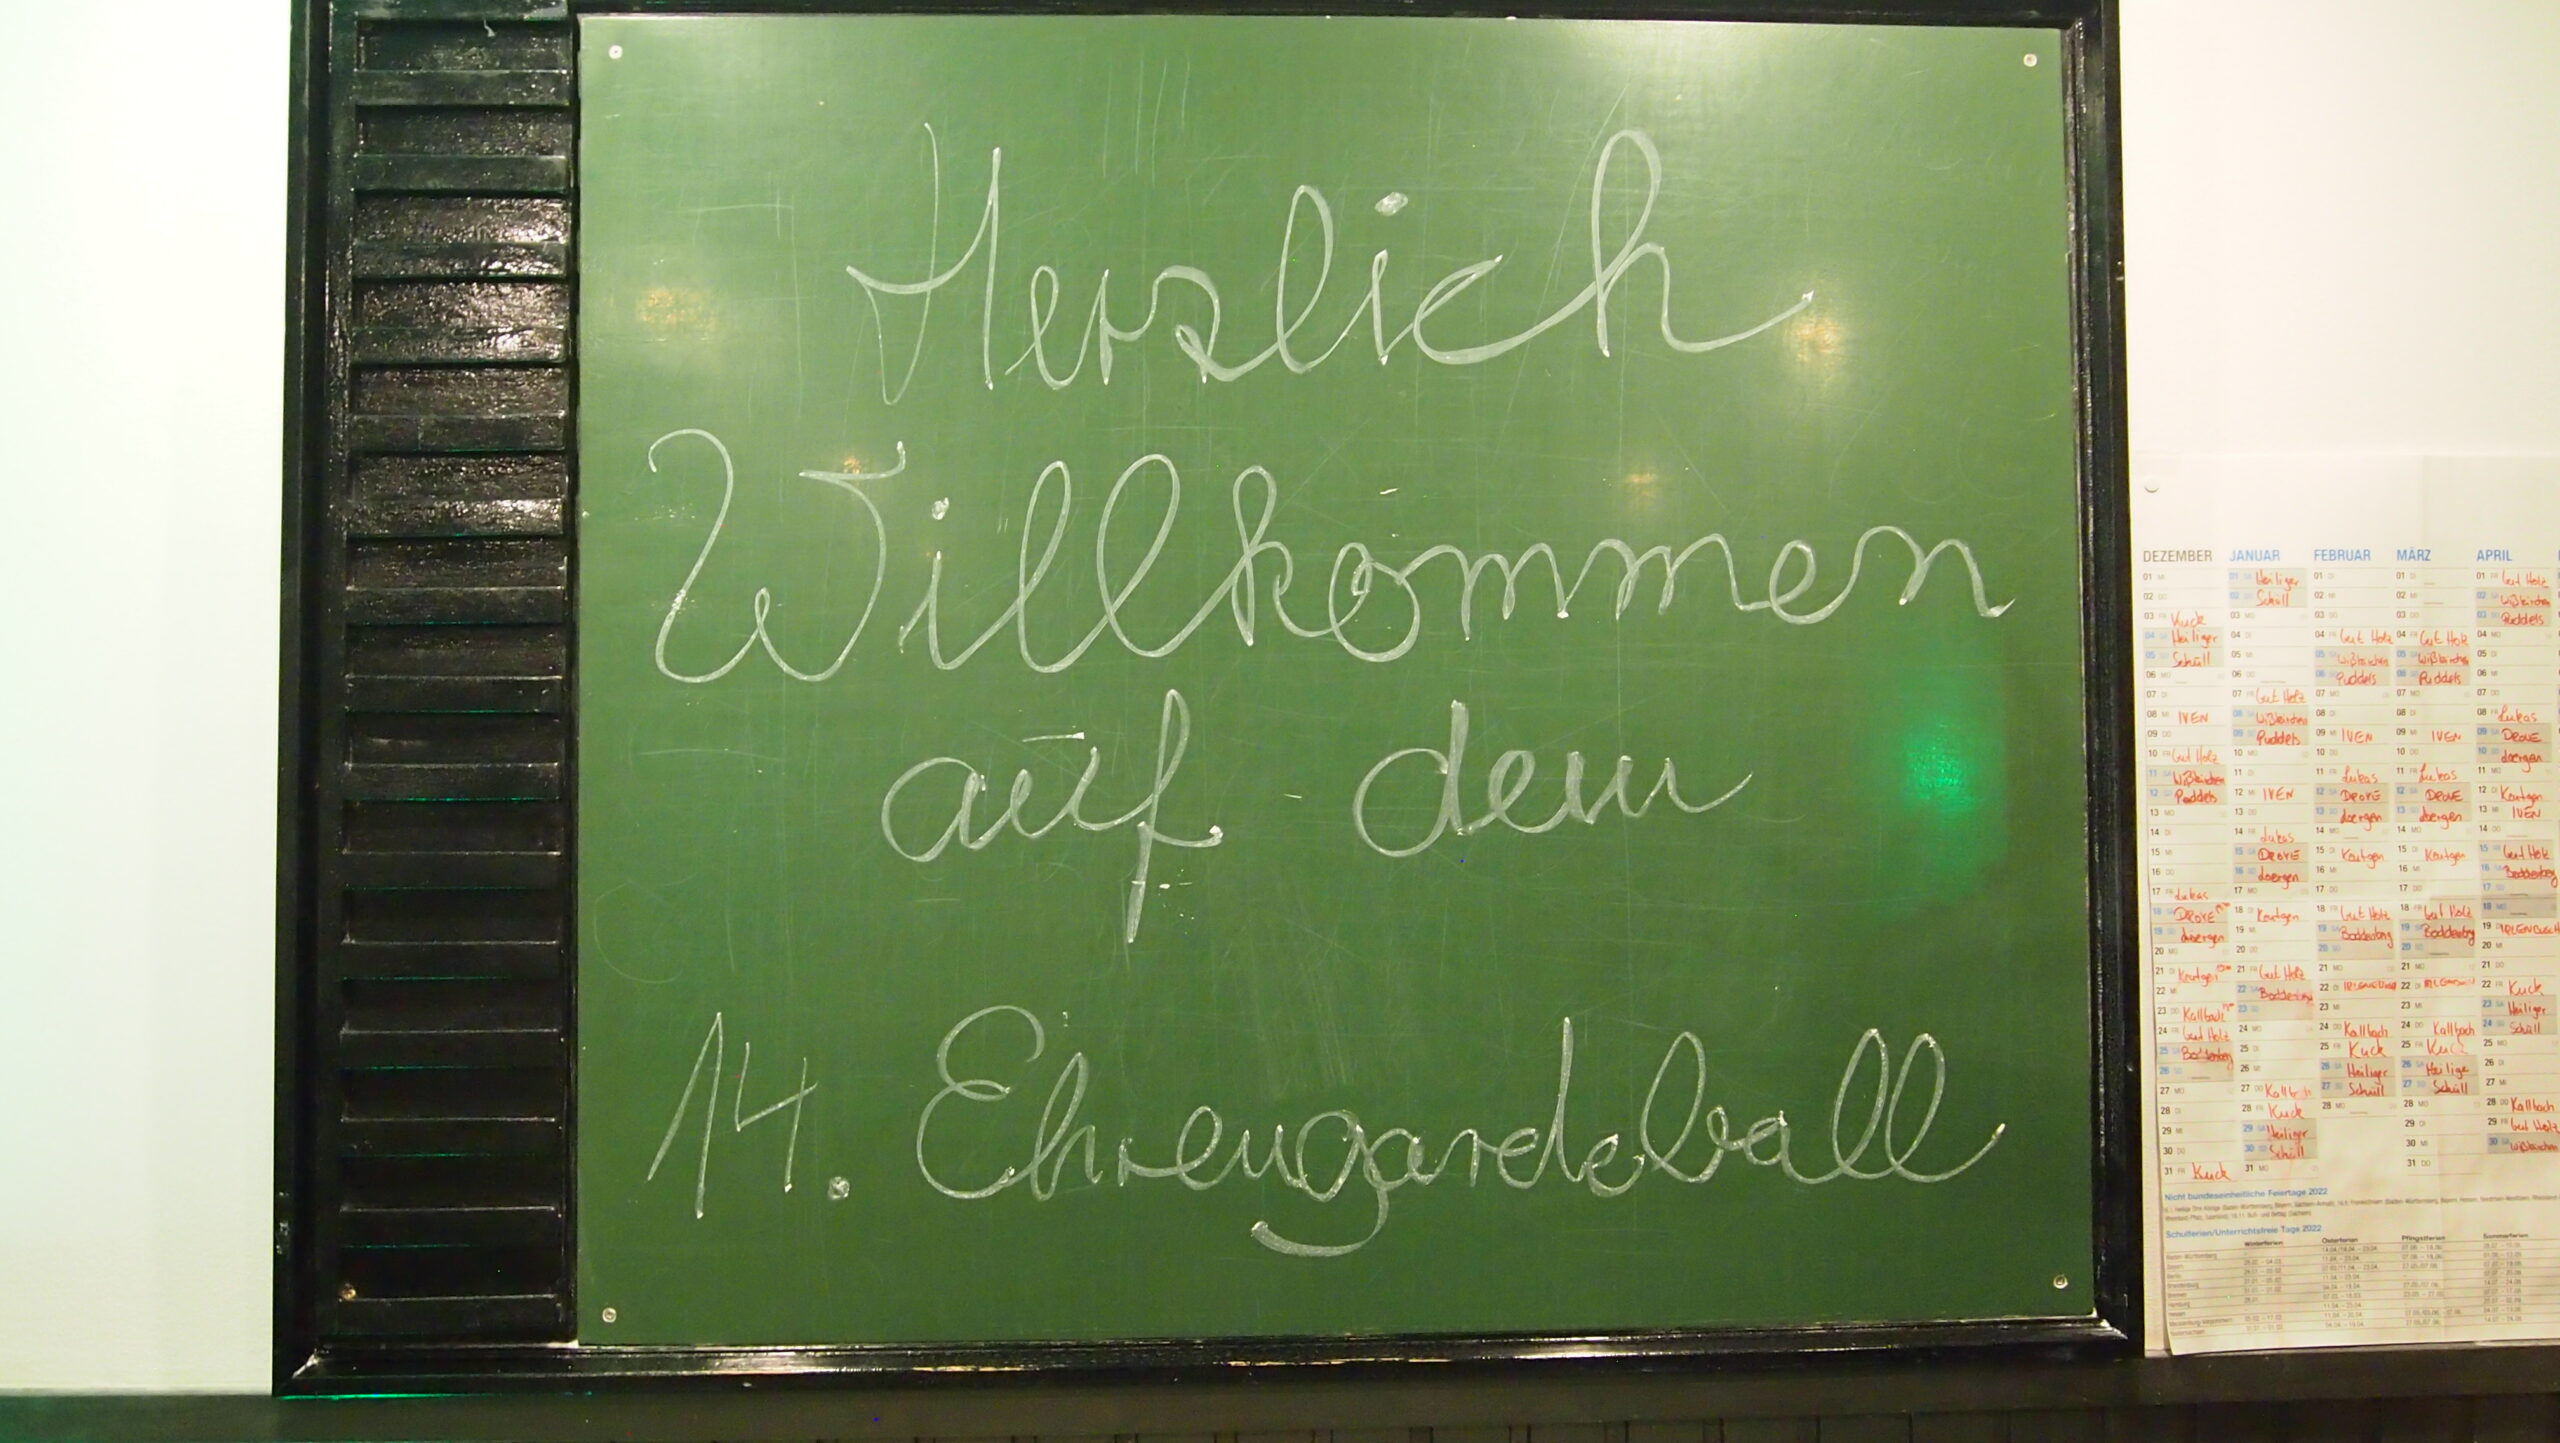 Herzlich
Willkommen
auf dem
14. Ehrengardeball
DEZEMBER JANUAR FEBRUAR MÄRZ APRIL
01 MI 01 SA Heiliger 01 DI 01 DI 01 FR Gut Holz
02 DO 02 SO Schüll 02 MI 02 MI 02 SA Wißkirchen
03 FR Kuck 03 MO 03 DO 03 DO 03 SO Puddels
04 SA Heiliger 04 DI 04 FR Gut Holz 04 FR Gut Holz 04 MO
05 SO Schüll 05 MI 05 SA Wißkirchen 05 SA Wißkirchen 05 DI
06 MO 06 DO 06 SO Puddels 06 SO Puddels 06 MI
07 DI 07 FR Gut Holz 07 MO 07 MO 07 DO
08 MI IVEN 08 SA Wißkirchen 08 DI 08 DI 08 FR Lukas
09 DO 09 SO Puddels 09 MI IVEN 09 MI IVEN 09 SA DROVE
10 FR Gut Holz 10 MO 10 DO 10 DO 10 SO doergen
11 SA Wißkirchen 11 DI 11 FR Lukas 11 FR Lukas 11 MO
12 SO Puddels 12 MI IVEN 12 SA DROVE 12 SA DROVE 12 DI Keutgen
13 MO 13 DO 13 SO doergen 13 SO doergen 13 MI IVEN
14 DI 14 FR Lukas 14 MO 14 MO 14 DO
15 MI 15 SA DROVE 15 DI Keutgen 15 DI Keutgen 15 FR Gut Holz
16 DO 16 SO doergen 16 MI 16 MI 16 SA Boddenberg
17 FR Lukas 17 MO 17 DO 17 DO 17 SO
18 SA DROVE 18 DI Keutgen 18 FR Gut Holz 18 FR Gut Holz 18 MO
19 SO doergen 19 MI 19 SA Boddenberg 19 SA Boddenberg 19 DI
20 MO 20 DO 20 SO 20 SO 20 MI
21 DI Keutgen 21 FR Gut Holz 21 MO 21 MO 21 DO
22 MI 22 SA Boddenberg 22 DI 22 DI 22 FR Kuck
23 DO Kallbach 23 SO 23 MI 23 MI 23 SA Heiliger
24 FR Gut Holz 24 MO 24 DO Kallbach 24 DO Kallbach 24 SO Schüll
25 SA Boddenberg 25 DI 25 FR Kuck 25 FR Kuck 25 MO
26 SO 26 MI 26 SA Heiliger 26 SA Heilige 26 DI
27 MO 27 DO Kallbach 27 SO Schüll 27 SO Schüll 27 MI
28 DI 28 FR Kuck 28 MO 28 MO 28 DO Kallbach
29 MI 29 SA Heiliger 29 DI 29 FR Gut Holz
30 DO 30 SO Schüll 30 MI 30 SA Wißkirchen
31 FR Kuck 31 MO 31 DO
Nicht bundeseinheitliche Feiertage 2022
Schulferien/Unterrichtsfreie Tage 2022
Winterferien Osterferien Pfingstferien Sommerferien